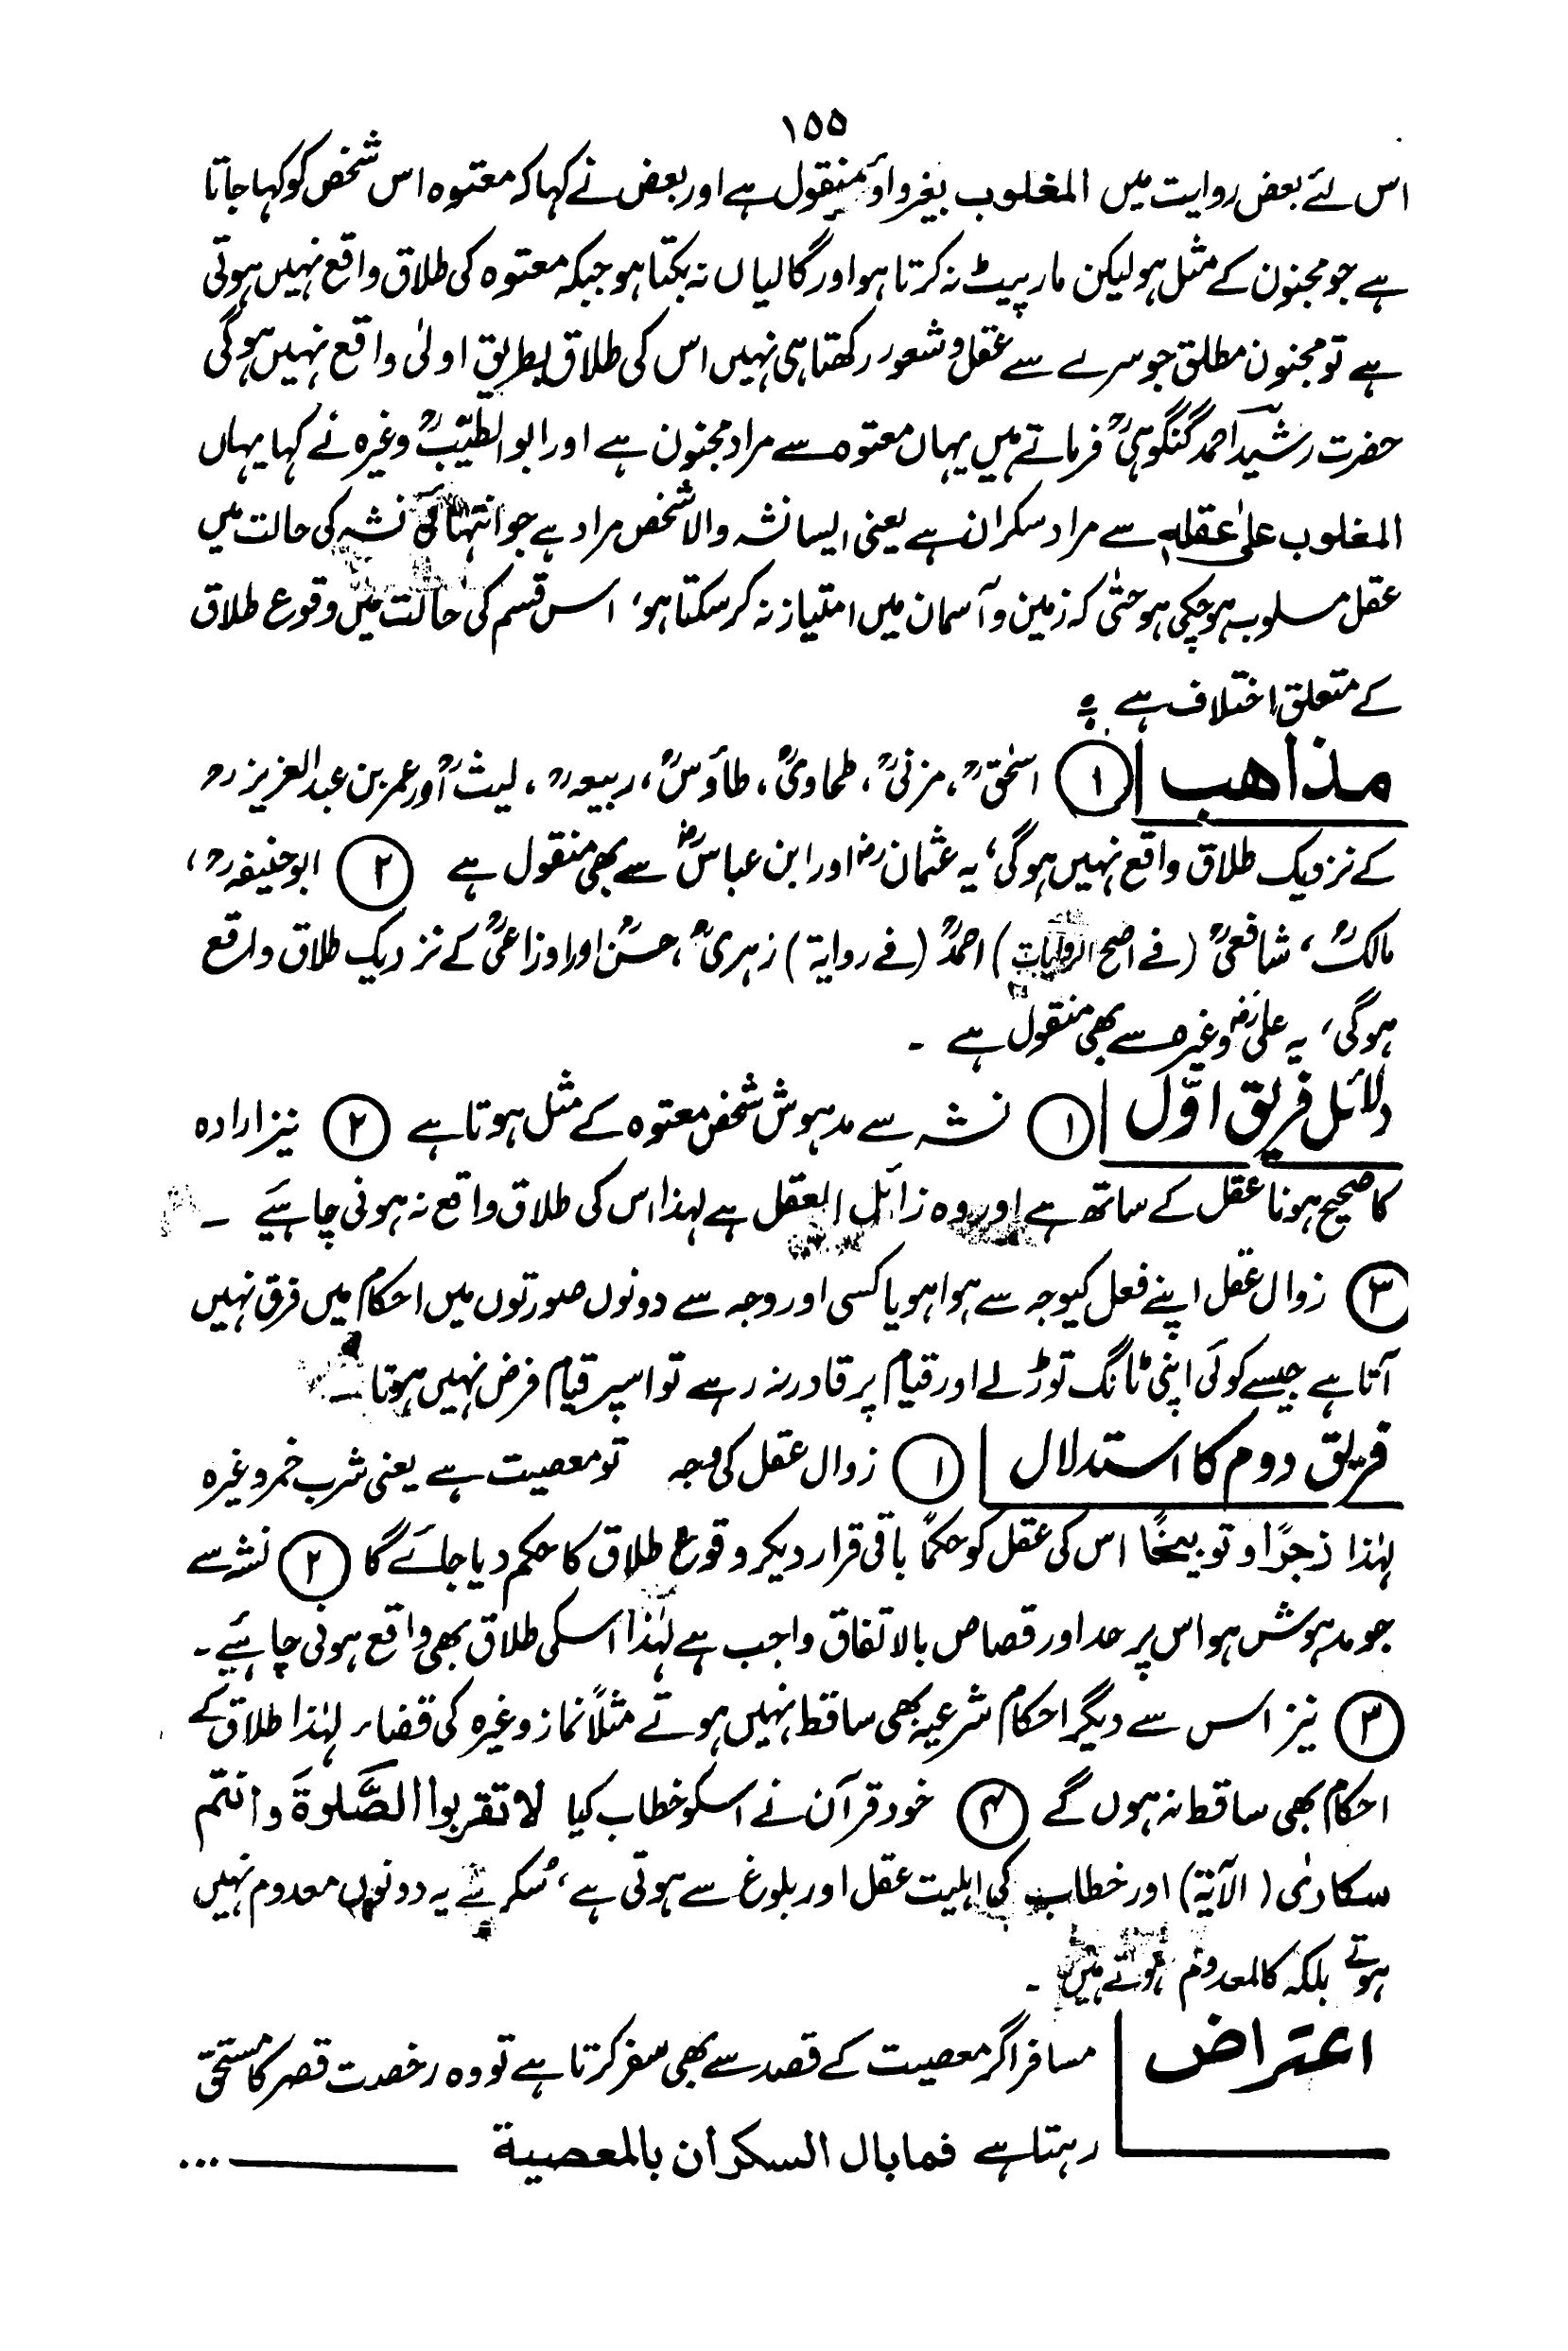 ۱۵۵
اس لئے بعض روایت میں المغلوب بغیر واو منقول ہے اور بعض نے کہا کہ معتوہ اس شخص کو کہا جاتا
ہے جو مجنون کے مثل ہو لیکن مار پیٹ نہ کرتا ہو اور گالیاں نہ بکتا ہو جبکہ معتوہ کی طلاق واقع نہیں ہوتی
ہے تو مجنون مطلق جو سرے سے عقل و شعور رکھتا ہی نہیں اس کی طلاق بطریق اولیٰ واقع نہیں ہوگی
حضرت رشید احمد گنگوہیؒ فرماتے ہیں یہاں معتوہ سے مراد مجنون ہے اور ابوالطیّبؒ وغیرہ نے کہا یہاں
المغلوب علیٰ عقلہ سے مراد سکران ہے یعنی ایسا نشہ والا شخص مراد ہے جو انتہائی نشہ کی حالت میں
عقل مسلوب ہوچکی ہو حتیٰ کہ زمین و آسمان میں امتیاز نہ کرسکتا ہو، اس قسم کی حالت میں وقوع طلاق
کے متعلق اختلاف ہے ۔
مذاھب ۱ اسحٰقؒ، مزنیؒ، طحاویؒ، طاؤسؒ، ربیعہؒ، لیثؒ اور عمر بن عبدالعزیزؒ
کے نزدیک طلاق واقع نہیں ہوگی، یہ عثمانؓ اور ابن عباسؓ سے بھی منقول ہے ۲ ابوحنیفہؒ،
مالکؒ، شافعیؒ (فی اصح الروایات) احمدؒ (فی روایۃ) زہریؒ، حسنؒ اور اوزاعیؒ کے نزدیک طلاق واقع
ہوگی، یہ علیؓ وغیرہ سے بھی منقول ہے ۔
دلائل فریق اوّل ۱ نشہ سے مدہوش شخص معتوہ کے مثل ہوتا ہے ۲ نیز ارادہ
کا صحیح ہونا عقل کے ساتھ ہے اور وہ زائل العقل ہے لہذا اس کی طلاق واقع نہ ہونی چاہیئے ۔
۳ زوال عقل اپنے فعل کیوجہ سے ہوا ہو یا کسی اور وجہ سے دونوں صورتوں میں احکام میں فرق نہیں
آتا ہے جیسے کوئی اپنی ٹانگ توڑلے اور قیام پر قادر نہ رہے تو اسپر قیام فرض نہیں ہوتا ۔
فریق دوم کا استدلال ۱ زوال عقل کی وجہ تو معصیت ہے یعنی شرب خمر وغیرہ
لہٰذا زجرًا و توبیخًا اس کی عقل کو حکمًا باقی قرار دیکر وقوع طلاق کا حکم دیا جائے گا ۲ نشہ سے
جو مدہوش ہو اس پر حد اور قصاص بالاتفاق واجب ہے لہٰذا اسکی طلاق بھی واقع ہونی چاہئیے ۔
۳ نیز اس سے دیگر احکام شرعیہ بھی ساقط نہیں ہوتے مثلًا نماز وغیرہ کی قضاء لہٰذا طلاق کے
احکام بھی ساقط نہ ہوں گے ۴ خود قرآن نے اسکو خطاب کیا لا تقربوا الصَّلوٰۃَ وانتم
سکاریٰ (الآیۃ) اور خطاب کی اہلیت عقل اور بلوغ سے ہوتی ہے، سُکر سے یہ دونوں معدوم نہیں
ہوتے بلکہ کالمعدوم ہوتے ہیں ۔
اعتراض مسافر اگر معصیت کے قصد سے بھی سفر کرتا ہے تو وہ رخصت قصر کا مستحق
رہتا ہے فما بال السکران بالمعصیۃ ...